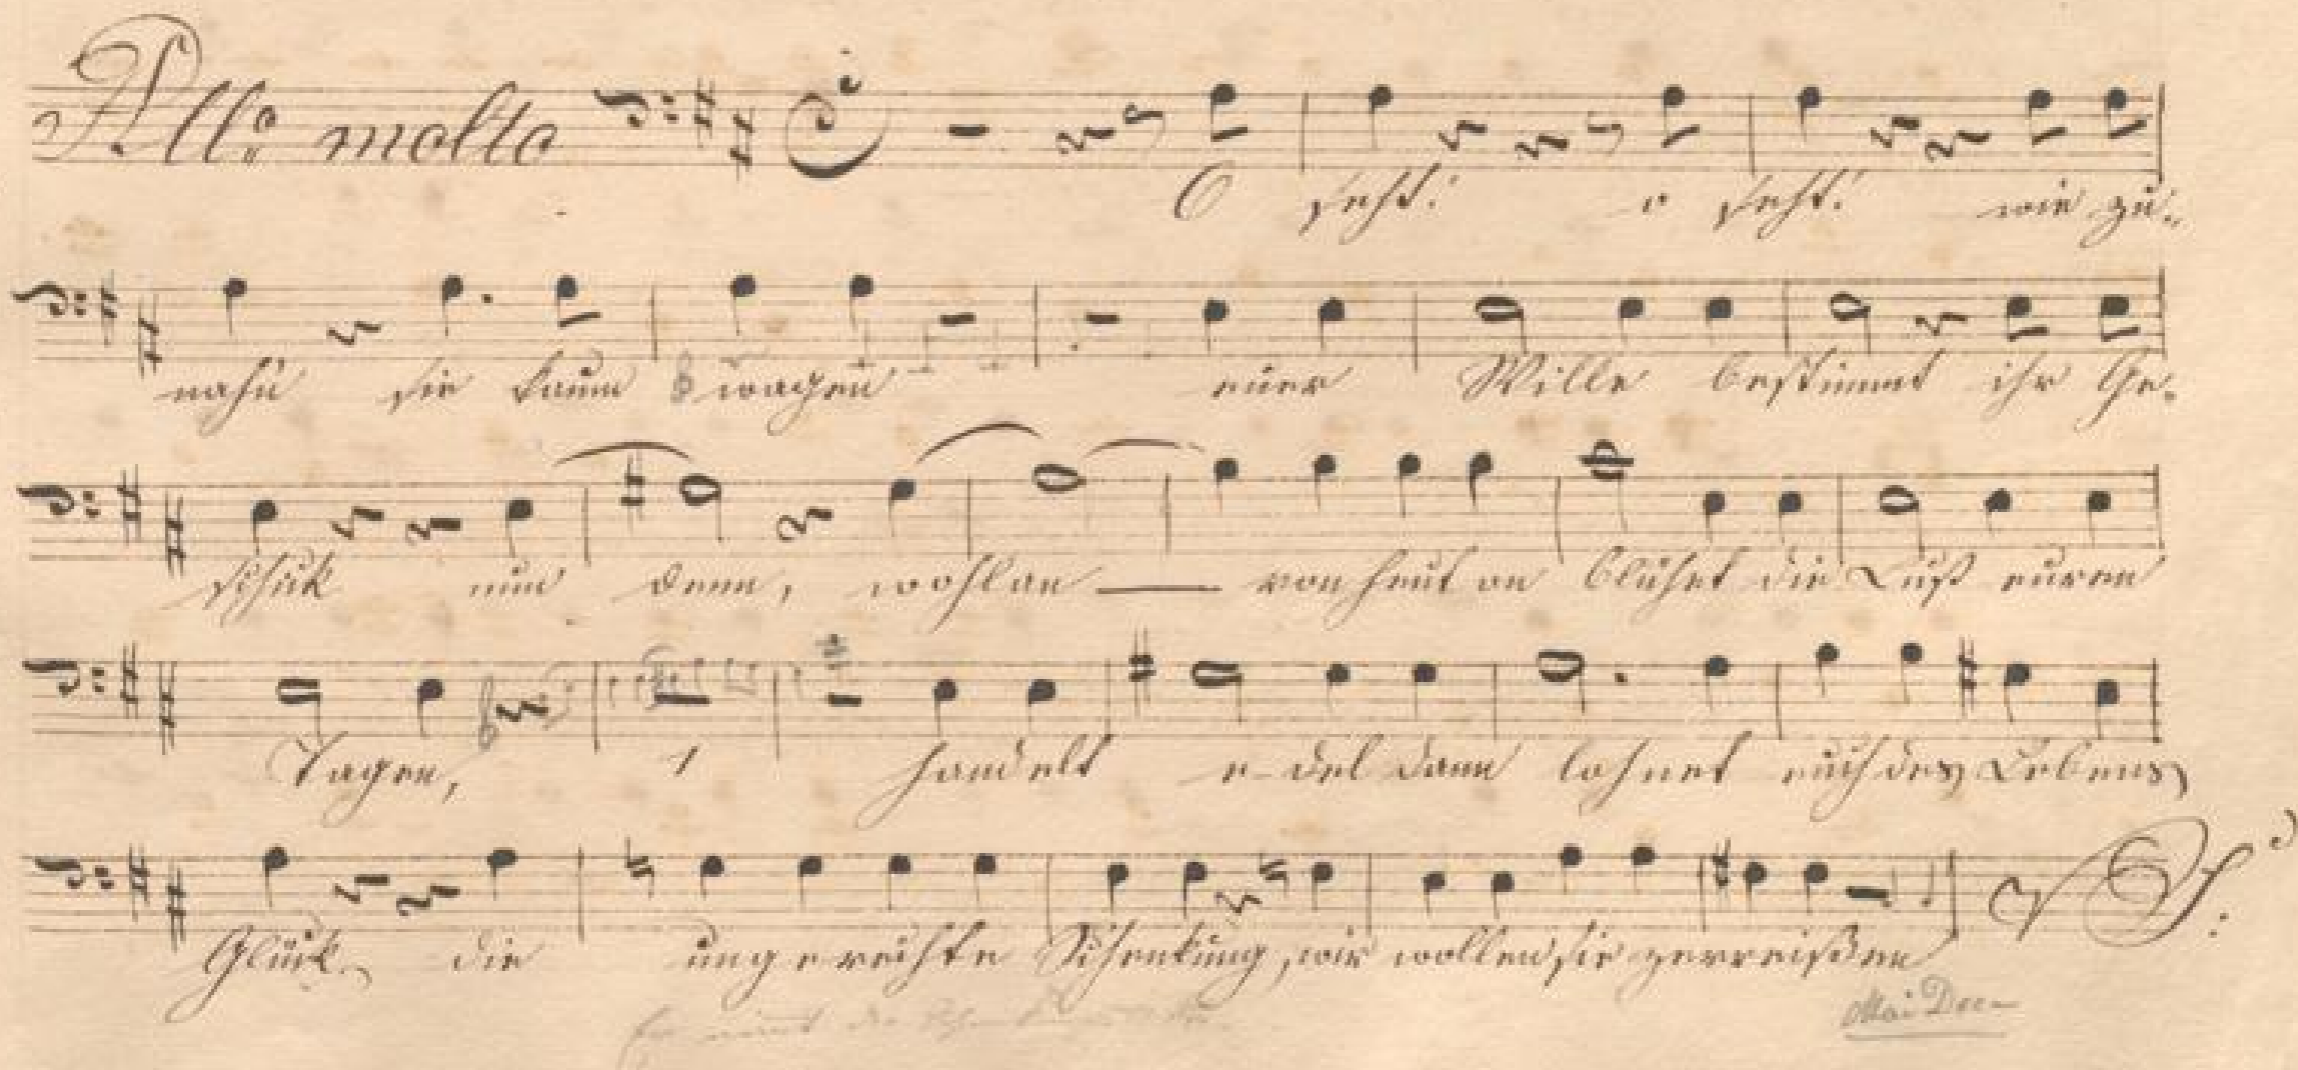 All:o molto
O seht! o seht! wie zu:
nah'n sie kaum wagen euer Wille bestimmt ihr Ge:
schick nun denn, wohlan von heut an blühet die Lust euren
Tagen, 1 handelt e-del dann lohnet euch des Lebens
Glück die ungerechte Schenkung, wir wollen sie zerreißen